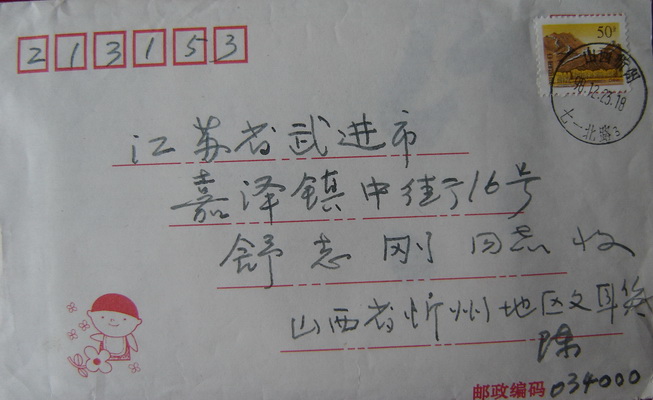 213153
50分
山西忻州
98.12.23.18
七一北路3
江苏省武进市
嘉泽镇中街16号
舒志刚 同志 收
山西省忻州地区文联
陈
邮政编码 034000